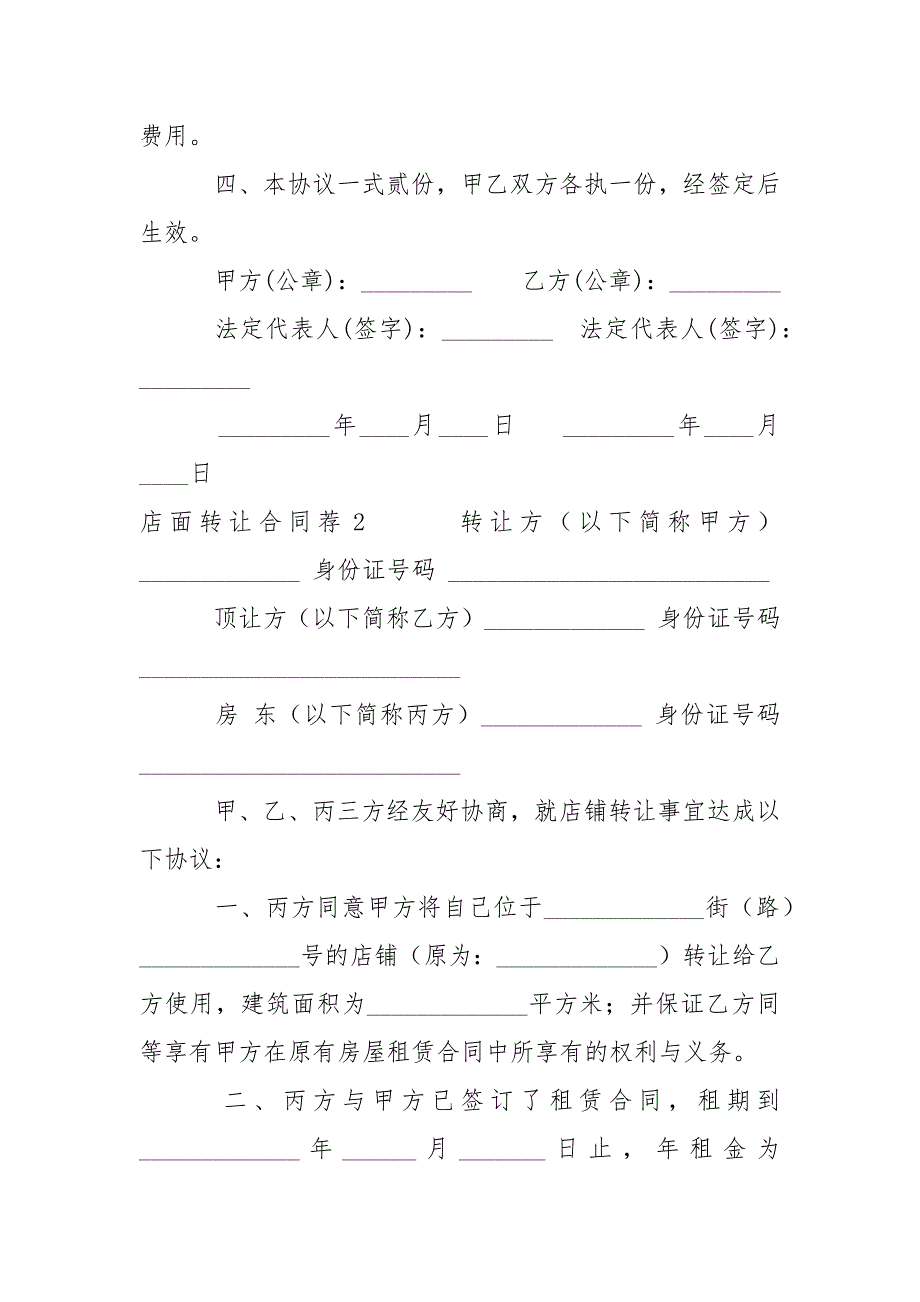 费用。
四、本协议一式贰份，甲乙双方各执一份，经签定后
生效。
甲方(公章)：_________ 乙方(公章)：_________
法定代表人(签字)：_________ 法定代表人(签字)：
_________
_________年____月____日 _________年____月
____日
店面转让合同荐 2 转让方（以下简称甲方）
_____________ 身份证号码 __________________________
顶让方（以下简称乙方）_____________ 身份证号码
__________________________
房 东（以下简称丙方）_____________ 身份证号码
__________________________
甲、乙、丙三方经友好协商，就店铺转让事宜达成以
下协议：
一、丙方同意甲方将自己位于_____________街（路）
_____________号的店铺（原为：_____________）转让给乙
方使用，建筑面积为_____________平方米；并保证乙方同
等享有甲方在原有房屋租赁合同中所享有的权利与义务。
二、丙方与甲方已签订了租赁合同，租期到
_____________年______月_______日止，年租金为